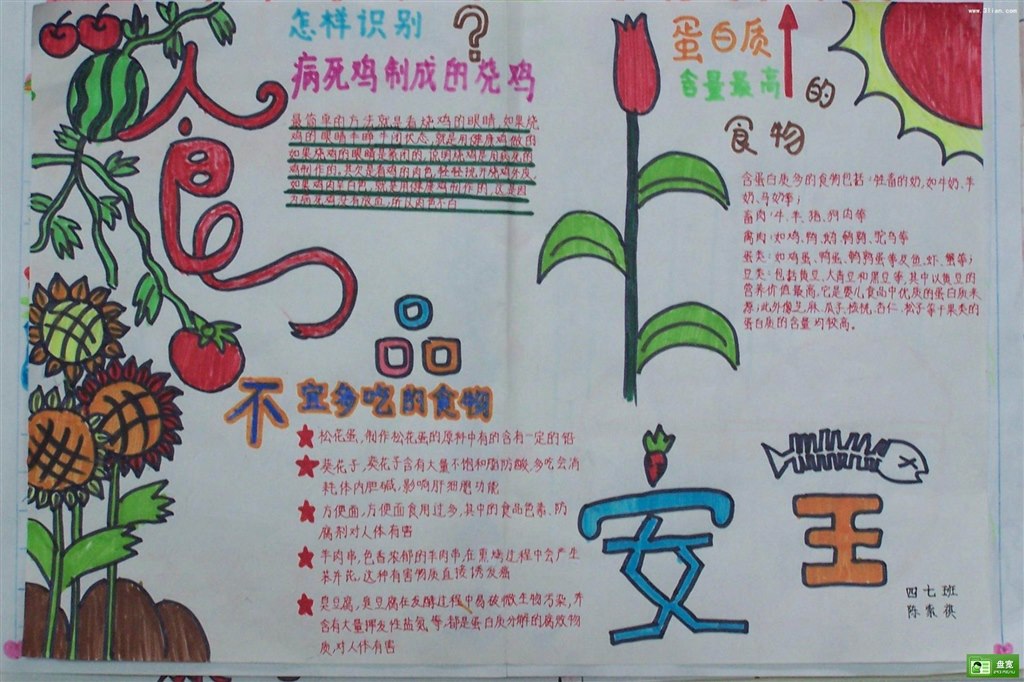 食
品
安
全
怎样识别
?
病死鸡制成的烧鸡
最简单的方法就是看烧鸡的眼睛,如果烧
鸡的眼睛半睁半闭状态,就是用健康鸡做的
如果烧鸡的眼睛是紧闭的,说明烧鸡是用病死的
鸡制作的。其次是看鸡的肉色,轻轻挑开烧鸡外皮,
如果鸡肉呈白色,就是用健康鸡制作的,这是因
为病死鸡没有放血,所以肉色不白
不宜多吃的食物
松花蛋,制作松花蛋的原料中有的含有一定的铅
葵花子,葵花子含有大量不饱和脂肪酸,多吃会消
耗体内胆碱,影响肝细胞功能
方便面,方便面食用过多,其中的食品色素、防
腐剂对人体有害
羊肉串,色香浓郁的羊肉串,在熏烤过程中会产生
苯并芘,这种有害物质直接诱发癌
臭豆腐,臭豆腐在发酵过程中易被微生物污染,并
含有大量挥发性盐氨等,都是蛋白质分解的腐败物
质,对人体有害
蛋白质
含量最高
的
食物
含蛋白质多的食物包括:牲畜的奶,如牛奶、羊
奶、马奶等;
畜肉:牛、羊、猪、狗肉等
禽肉:如鸡、鸭、鹅、鹌鹑、鸵鸟等
蛋类:如鸡蛋、鸭蛋、鹌鹑蛋等及鱼、虾、蟹等;
豆类:包括黄豆、大青豆和黑豆等,其中以黄豆的
营养价值最高,它是婴儿食品中优质的蛋白质来
源;此外像芝麻、瓜子、核桃、杏仁、松子等干果类的
蛋白质的含量均较高。
四七班
陈索祺
www.3lian.com
盘宽